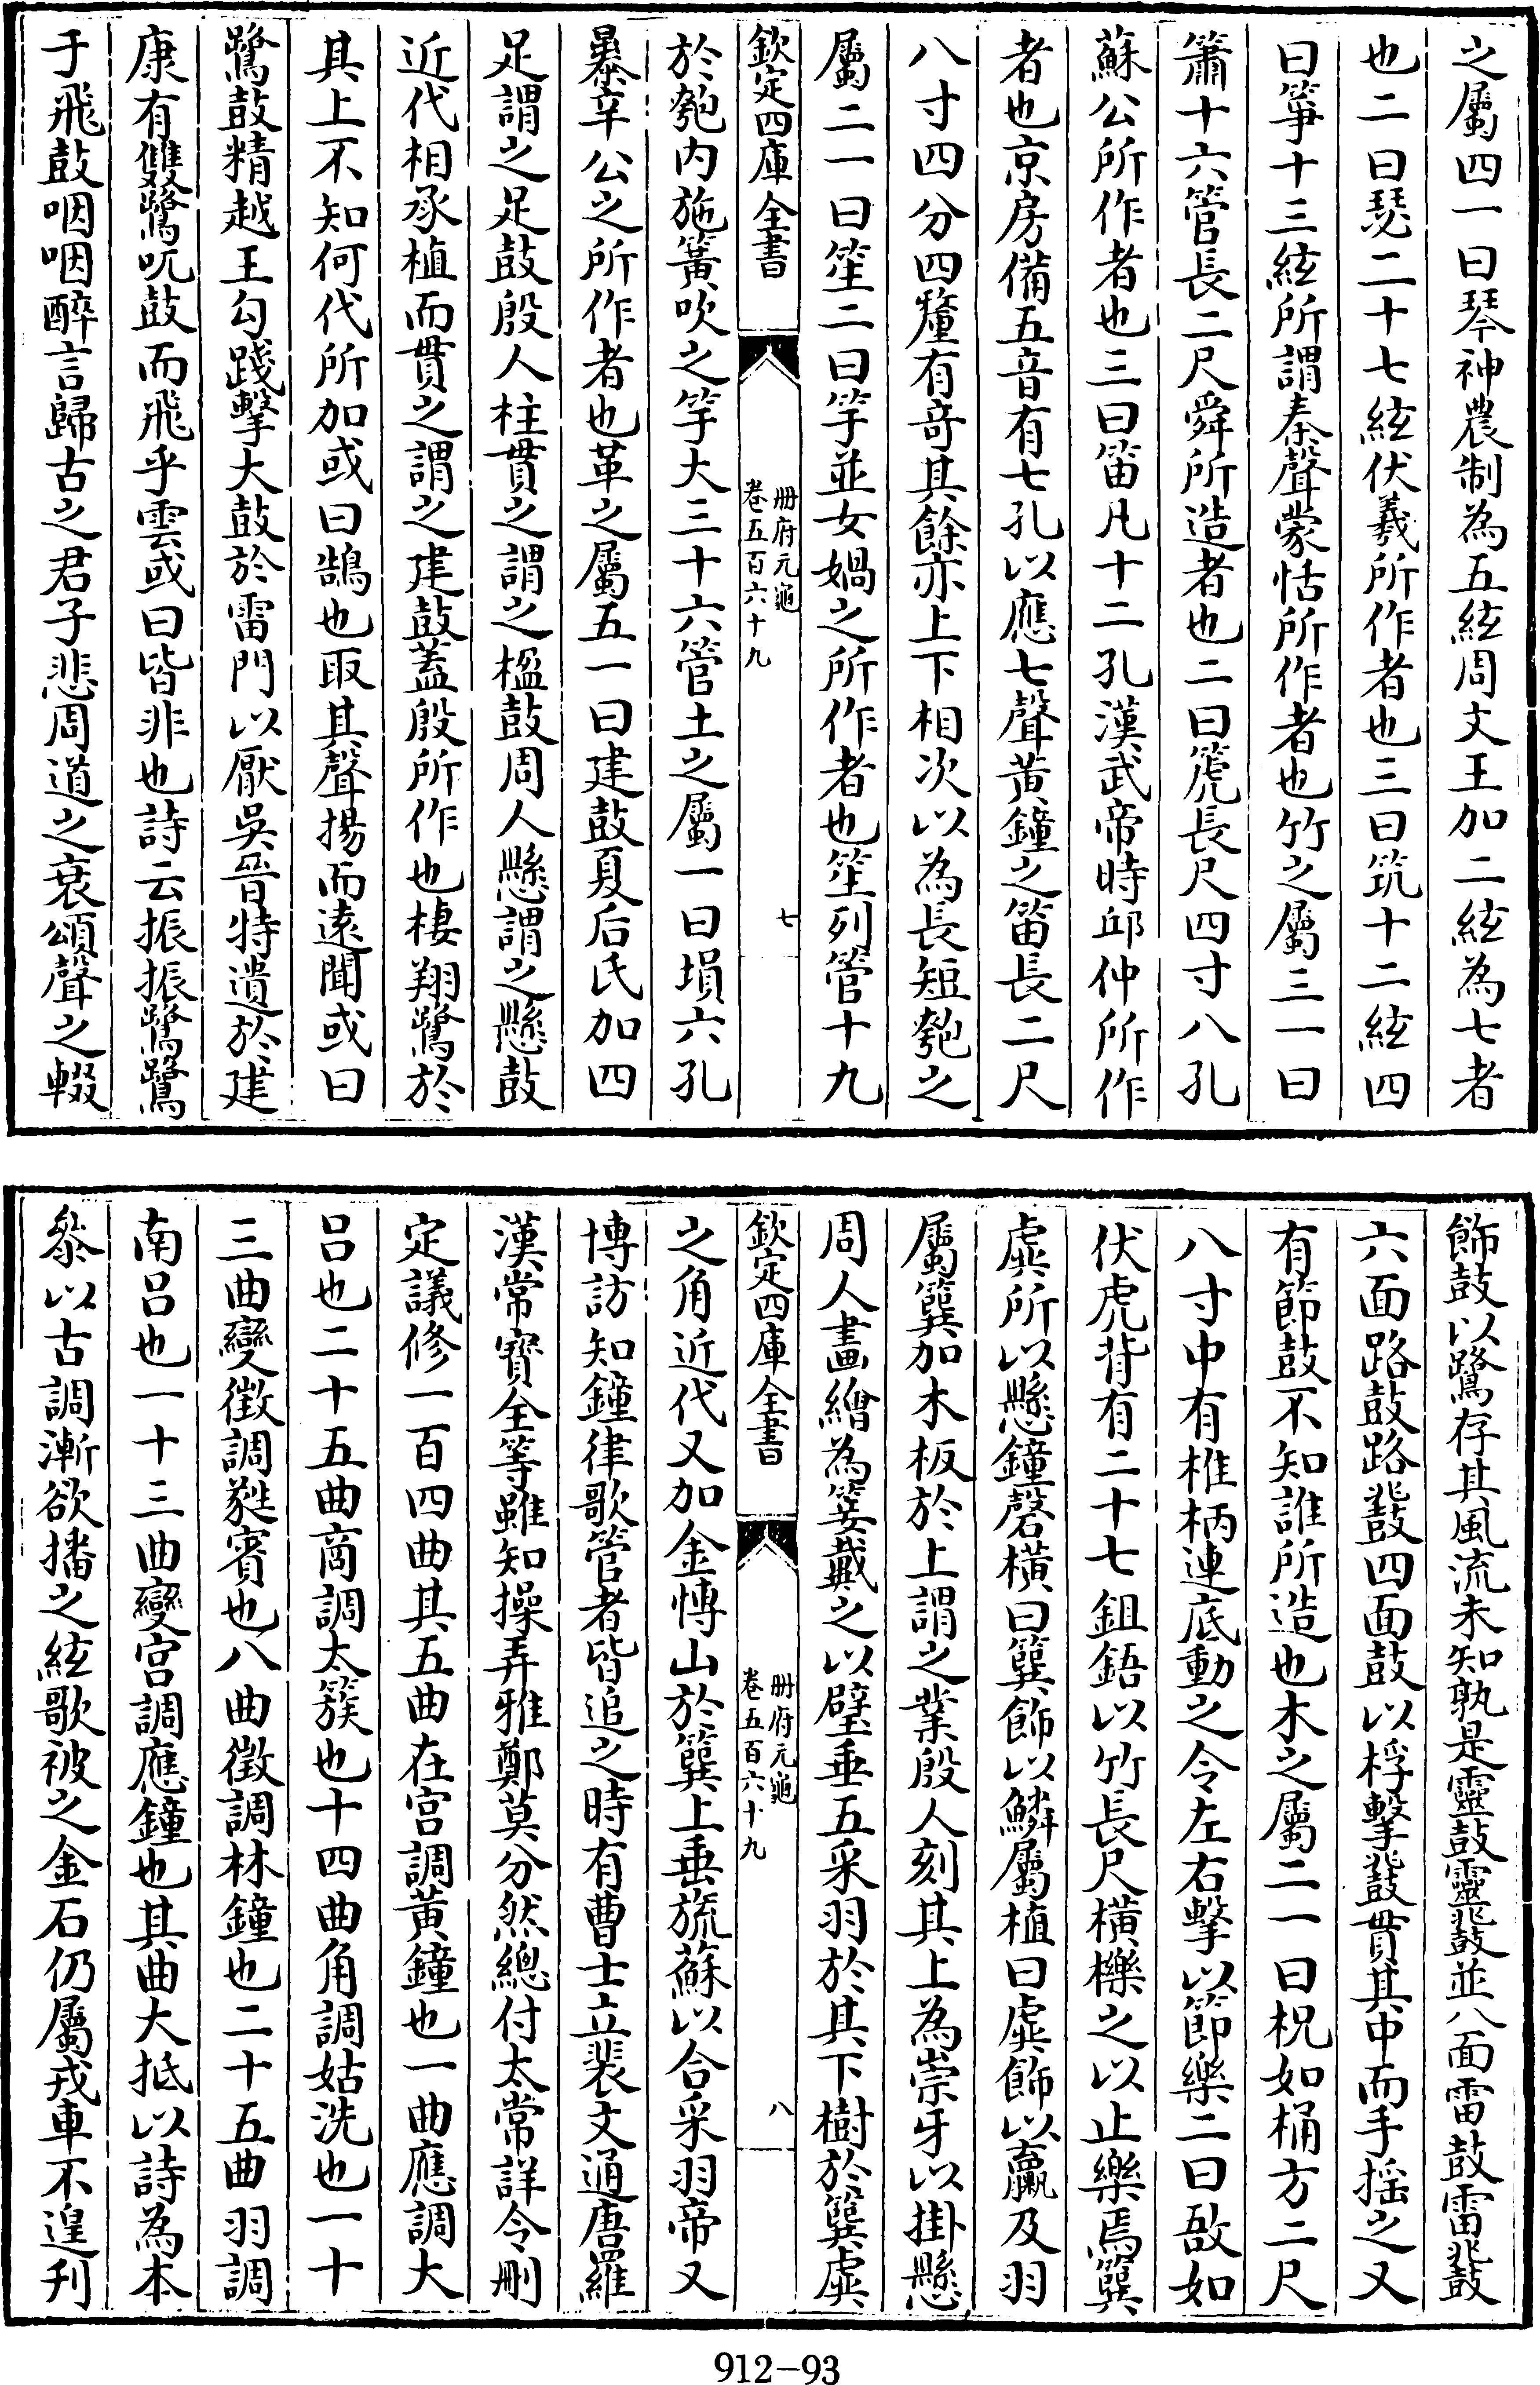 之屬四一曰琴神農制為五絃周文王加二絃為七者
也二曰瑟二十七絃伏羲所作者也三曰筑十二絃四
曰箏十三絃所謂秦聲蒙恬所作者也竹之屬三一曰
簫十六管長二尺舜所造者也二曰箎長尺四寸八孔
蘇公所作者也三曰笛凡十二孔漢武帝時邱仲所作
者也京房備五音有七孔以應七聲黃鐘之笛長二尺
八寸四分四釐有竒其餘亦上下相次以為長短匏之
屬二一曰笙二曰竽並女媧之所作者也笙列管十九
欽定四庫全書
册府元龜
卷五百六十九
七
於匏内施簧吹之竽大三十六管土之屬一曰塤六孔
暴辛公之所作者也革之屬五一曰建鼓夏后氏加四
足謂之足鼓殷人柱貫之謂之楹鼓周人懸謂之懸鼓
近代相承植而貫之謂之建鼓蓋殷所作也棲翔鷺於
其上不知何代所加或曰鵠也取其聲揚而遠聞或曰
鷺鼓精越王勾踐擊大鼓於雷門以厭吳晉時遺於建
康有雙鷺吮鼓而飛乎雲或曰皆非也詩云振振鷺鷺
于飛鼓咽咽醉言歸古之君子悲周道之衰頌聲之輟
飾鼓以鷺存其風流未知孰是靈鼓靈鼗並八面雷鼓雷鼗
六面路鼓路鼗四面鼓以桴擊鼗貫其中而手揺之又
有節鼓不知誰所造也木之屬二一曰柷如桶方二尺
八寸中有椎柄連底動之令左右擊以節樂二曰敔如
伏虎背有二十七鉏鋙以竹長尺橫櫟之以止樂焉簨
虡所以懸鐘磬橫曰簨飾以鱗屬植曰虡飾以臝及羽
屬簨加木板於上謂之業殷人刻其上為崇牙以掛懸
周人畫繒為翣戴之以璧垂五采羽於其下樹於簨虡
欽定四庫全書
册府元龜
卷五百六十九
八
之角近代又加金博山於簨上垂旒蘇以合采羽帝又
博訪知鐘律歌管者皆追之時有曹士立裴文通唐羅
漢常寳全等雖知操弄雅鄭莫分然總付太常詳令刪
定議修一百四曲其五曲在宫調黃鐘也一曲應調大
吕也二十五曲商調太簇也十四曲角調姑洗也一十
三曲變徵調蕤賓也八曲徵調林鐘也二十五曲羽調
南吕也一十三曲變宫調應鐘也其曲大抵以詩為本
叅以古調漸欲播之絃歌被之金石仍屬戎車不遑刋
912-93